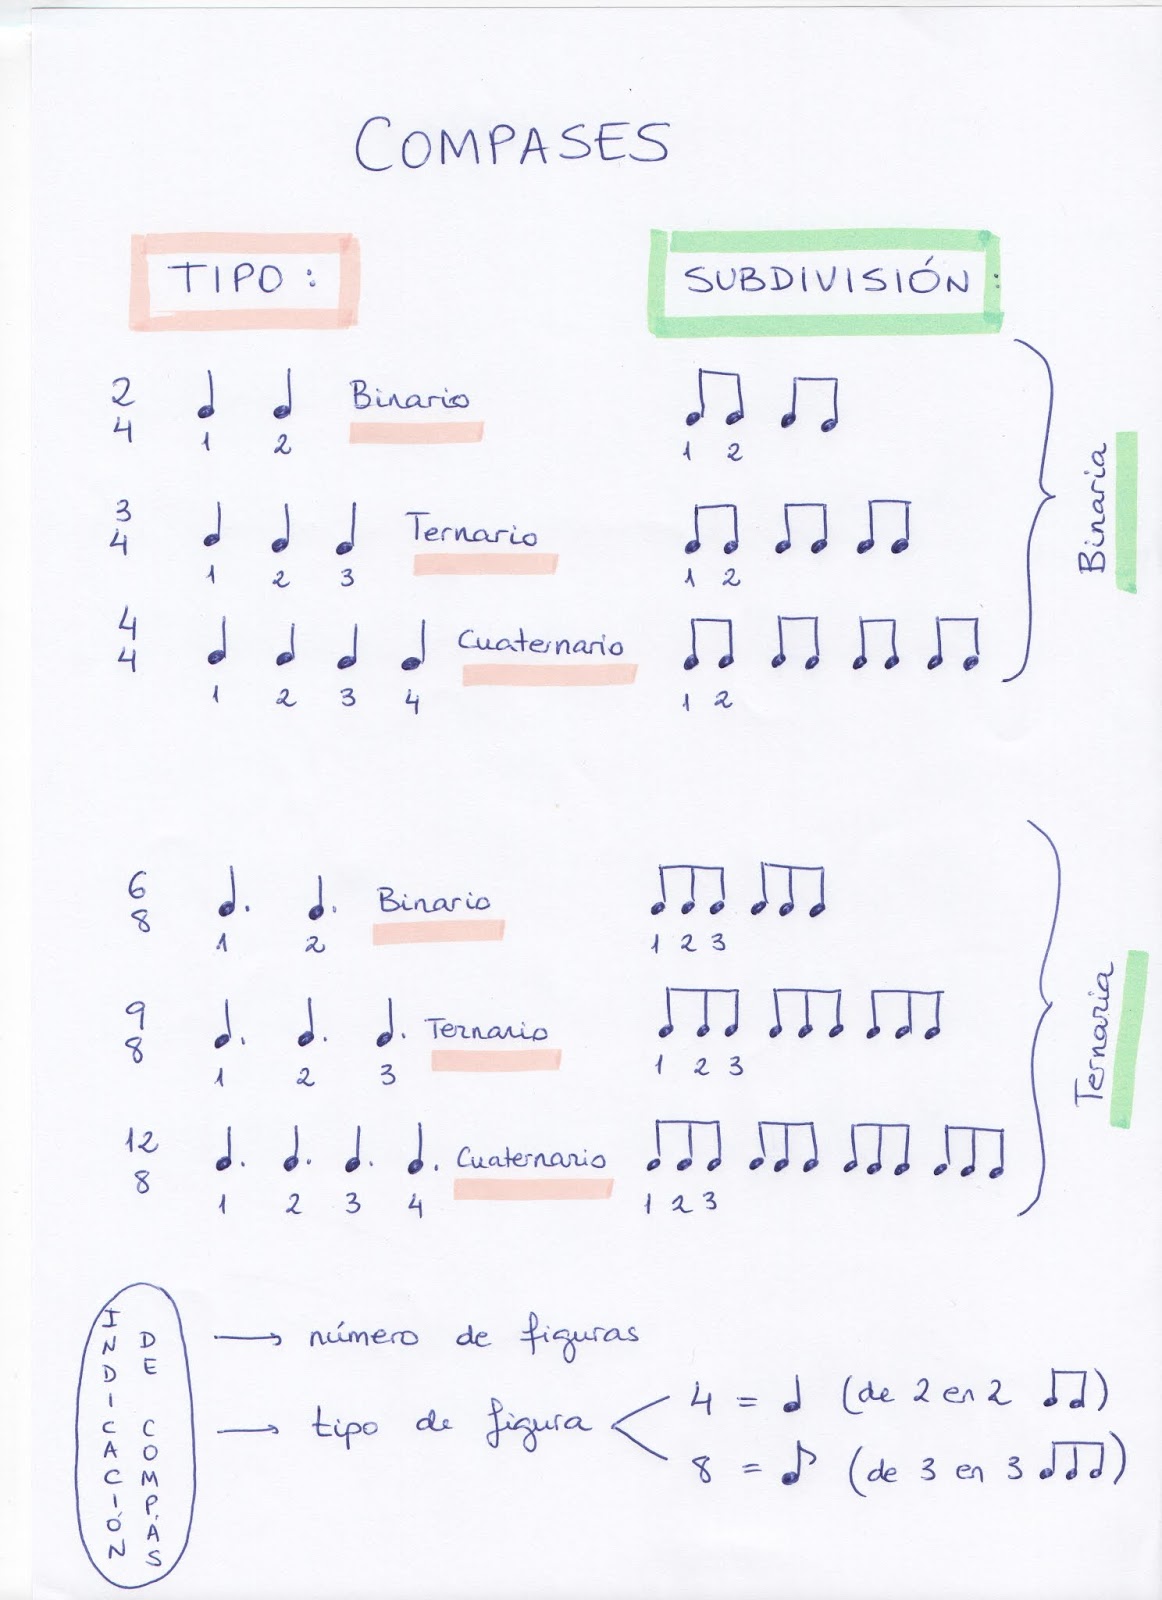 COMPASES
TIPO: SUBDIVISIÓN:
2
4 Binario
1 2 1 2
3
4 Ternario
1 2 3 1 2
4
4 Cuaternario
1 2 3 4 1 2
Binaria
6
8 Binario
1 2 1 2 3
9
8 Ternario
1 2 3 1 2 3
12
8 Cuaternario
1 2 3 4 1 2 3
Ternaria
INDICACIÓN
DE COMPÁS
→ número de figuras
→ tipo de figura
4 = ♩ (de 2 en 2 ♫)
8 = ♪ (de 3 en 3 ♪♪♪)